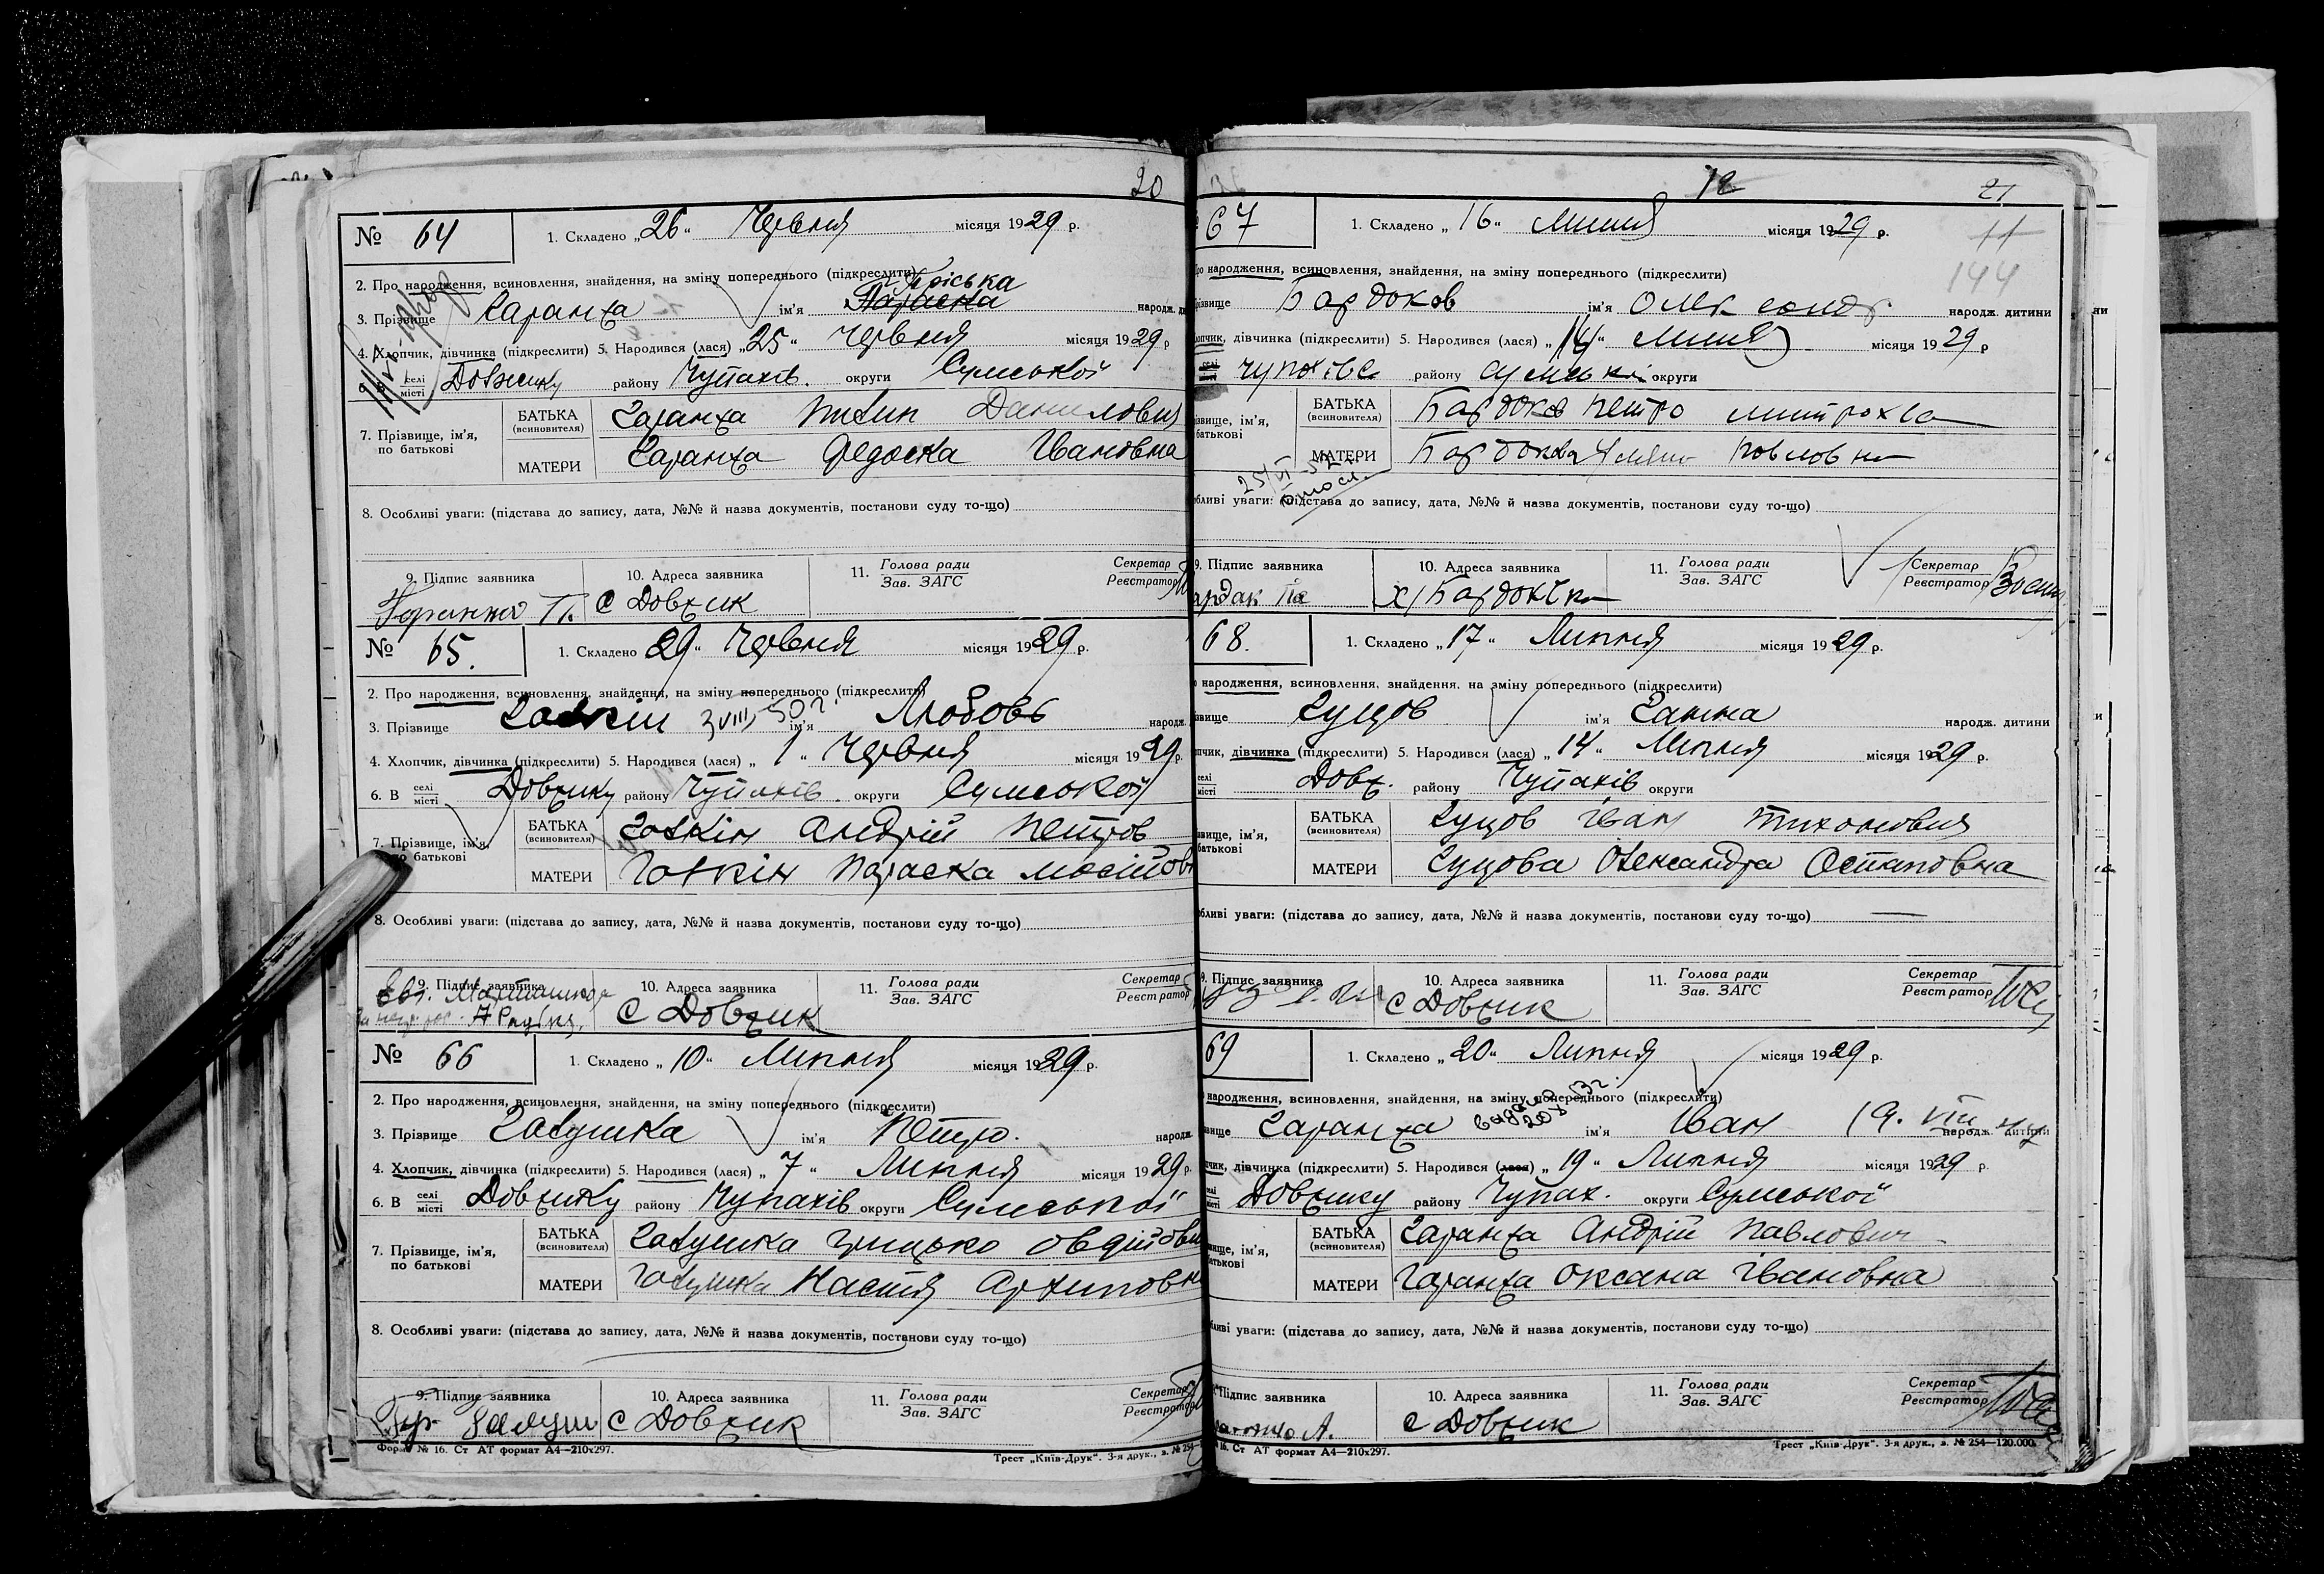 20
№ 64
1. Складено „26“ Червня місяця 1929 р.
2. Про народження, всиновлення, знайдення, на зміну попереднього (підкреслити)
Пріська
3. Прізвище Гаранжа ім'я Параска народж.
4. Хлопчик, дівчинка (підкреслити) 5. Народився (лася) „25“ Червня місяця 1929 р
6. В селі місті Довжику району Чупахів. округи Сумської
7. Прізвище, ім'я, по батькові
БАТЬКА (всиновителя) Гаранжа Данилович
МАТЕРИ Гаранжа Федоска Івановна
8. Особливі уваги: (підстава до запису, дата, №№ й назва документів, постанови суду то-що)
9. Підпис заявника 10. Адреса заявника 11. Голова ради Зав. ЗАГС Секретар Реєстратор
с Довжик
№ 65.
1. Складено 29“ Червня місяця 1929 р.
2. Про народження, всиновлення, знайдення, на зміну попереднього (підкреслити)
3. Прізвище 3 VIII 50 г. ім'я Любовь народж.
4. Хлопчик, дівчинка (підкреслити) 5. Народився (лася) „1“ Червня місяця 1929 р.
6. В селі місті Довжику району Чупахів. округи Сумської
7. Прізвище, ім'я, по батькові
БАТЬКА (всиновителя) Галкін Андрій Петров
МАТЕРИ Галкін Параска
8. Особливі уваги: (підстава до запису, дата, №№ й назва документів, постанови суду то-що)
9. Підпис заявника 10. Адреса заявника 11. Голова ради Зав. ЗАГС Секретар Реєстратор
с Довжик
№ 66
1. Складено „10“ Липня місяця 1929 р.
2. Про народження, всиновлення, знайдення, на зміну попереднього (підкреслити)
3. Прізвище Галушка ім'я Петро. народж.
4. Хлопчик, дівчинка (підкреслити) 5. Народився (лася) „7“ Липня місяця 1929 р.
6. В селі місті Довжику району Чупахів округи Сумської
7. Прізвище, ім'я, по батькові
БАТЬКА (всиновителя) Галушка Грицько
МАТЕРИ Галушка Настя
8. Особливі уваги: (підстава до запису, дата, №№ й назва документів, постанови суду то-що)
9. Підпис заявника 10. Адреса заявника 11. Голова ради Зав. ЗАГС Секретар Реєстратор
Гр Галуш с Довжик
Форма № 16. Ст АТ формат А4—210х297.
Трест „Київ-Друк“. 3-я друк., з. № 254
12
21
11
144
67
1. Складено „16“ Липня місяця 1929 р.
народження, всиновлення, знайдення, на зміну попереднього (підкреслити)
Бардоков ім'я народж. дитини
дівчинка (підкреслити) 5. Народився (лася) „14“ Липня місяця 1929 р
району округи
БАТЬКА (всиновителя) Бардоков Петро
МАТЕРИ Повловна
уваги: (підстава до запису, дата, №№ й назва документів, постанови суду то-що)
9. Підпис заявника 10. Адреса заявника 11. Голова ради Зав. ЗАГС Секретар Реєстратор
68.
1. Складено „17“ Липня місяця 1929 р.
народження, всиновлення, знайдення, на зміну попереднього (підкреслити)
Гуцов ім'я Ганна народж. дитини
дівчинка (підкреслити) 5. Народився (лася) „14“ Липня місяця 1929 р.
селі місті Довж. району Чупахів округи
БАТЬКА (всиновителя) Гуцов Іван Тихонович
МАТЕРИ Гуцова Олександра Остаповна
уваги: (підстава до запису, дата, №№ й назва документів, постанови суду то-що)
9. Підпис заявника 10. Адреса заявника 11. Голова ради Зав. ЗАГС Секретар Реєстратор
с Довжик
69
1. Складено „20“ Липня місяця 1929 р.
народження, всиновлення, знайдення, на зміну попереднього (підкреслити)
Гаранжа ім'я Іван народж. дитини
дівчинка (підкреслити) 5. Народився (лася) „19“ Липня місяця 1929 р.
Довжику району Чупах. округи Сумської
БАТЬКА (всиновителя) Гаранжа Андрій Павлович
МАТЕРИ Гаранжа Оксана Івановна
уваги: (підстава до запису, дата, №№ й назва документів, постанови суду то-що)
Підпис заявника 10. Адреса заявника 11. Голова ради Зав. ЗАГС Секретар Реєстратор
с Довжик
16. Ст АТ формат А4—210х297.
Трест „Київ-Друк“. 3-я друк., з. № 254—120.000.